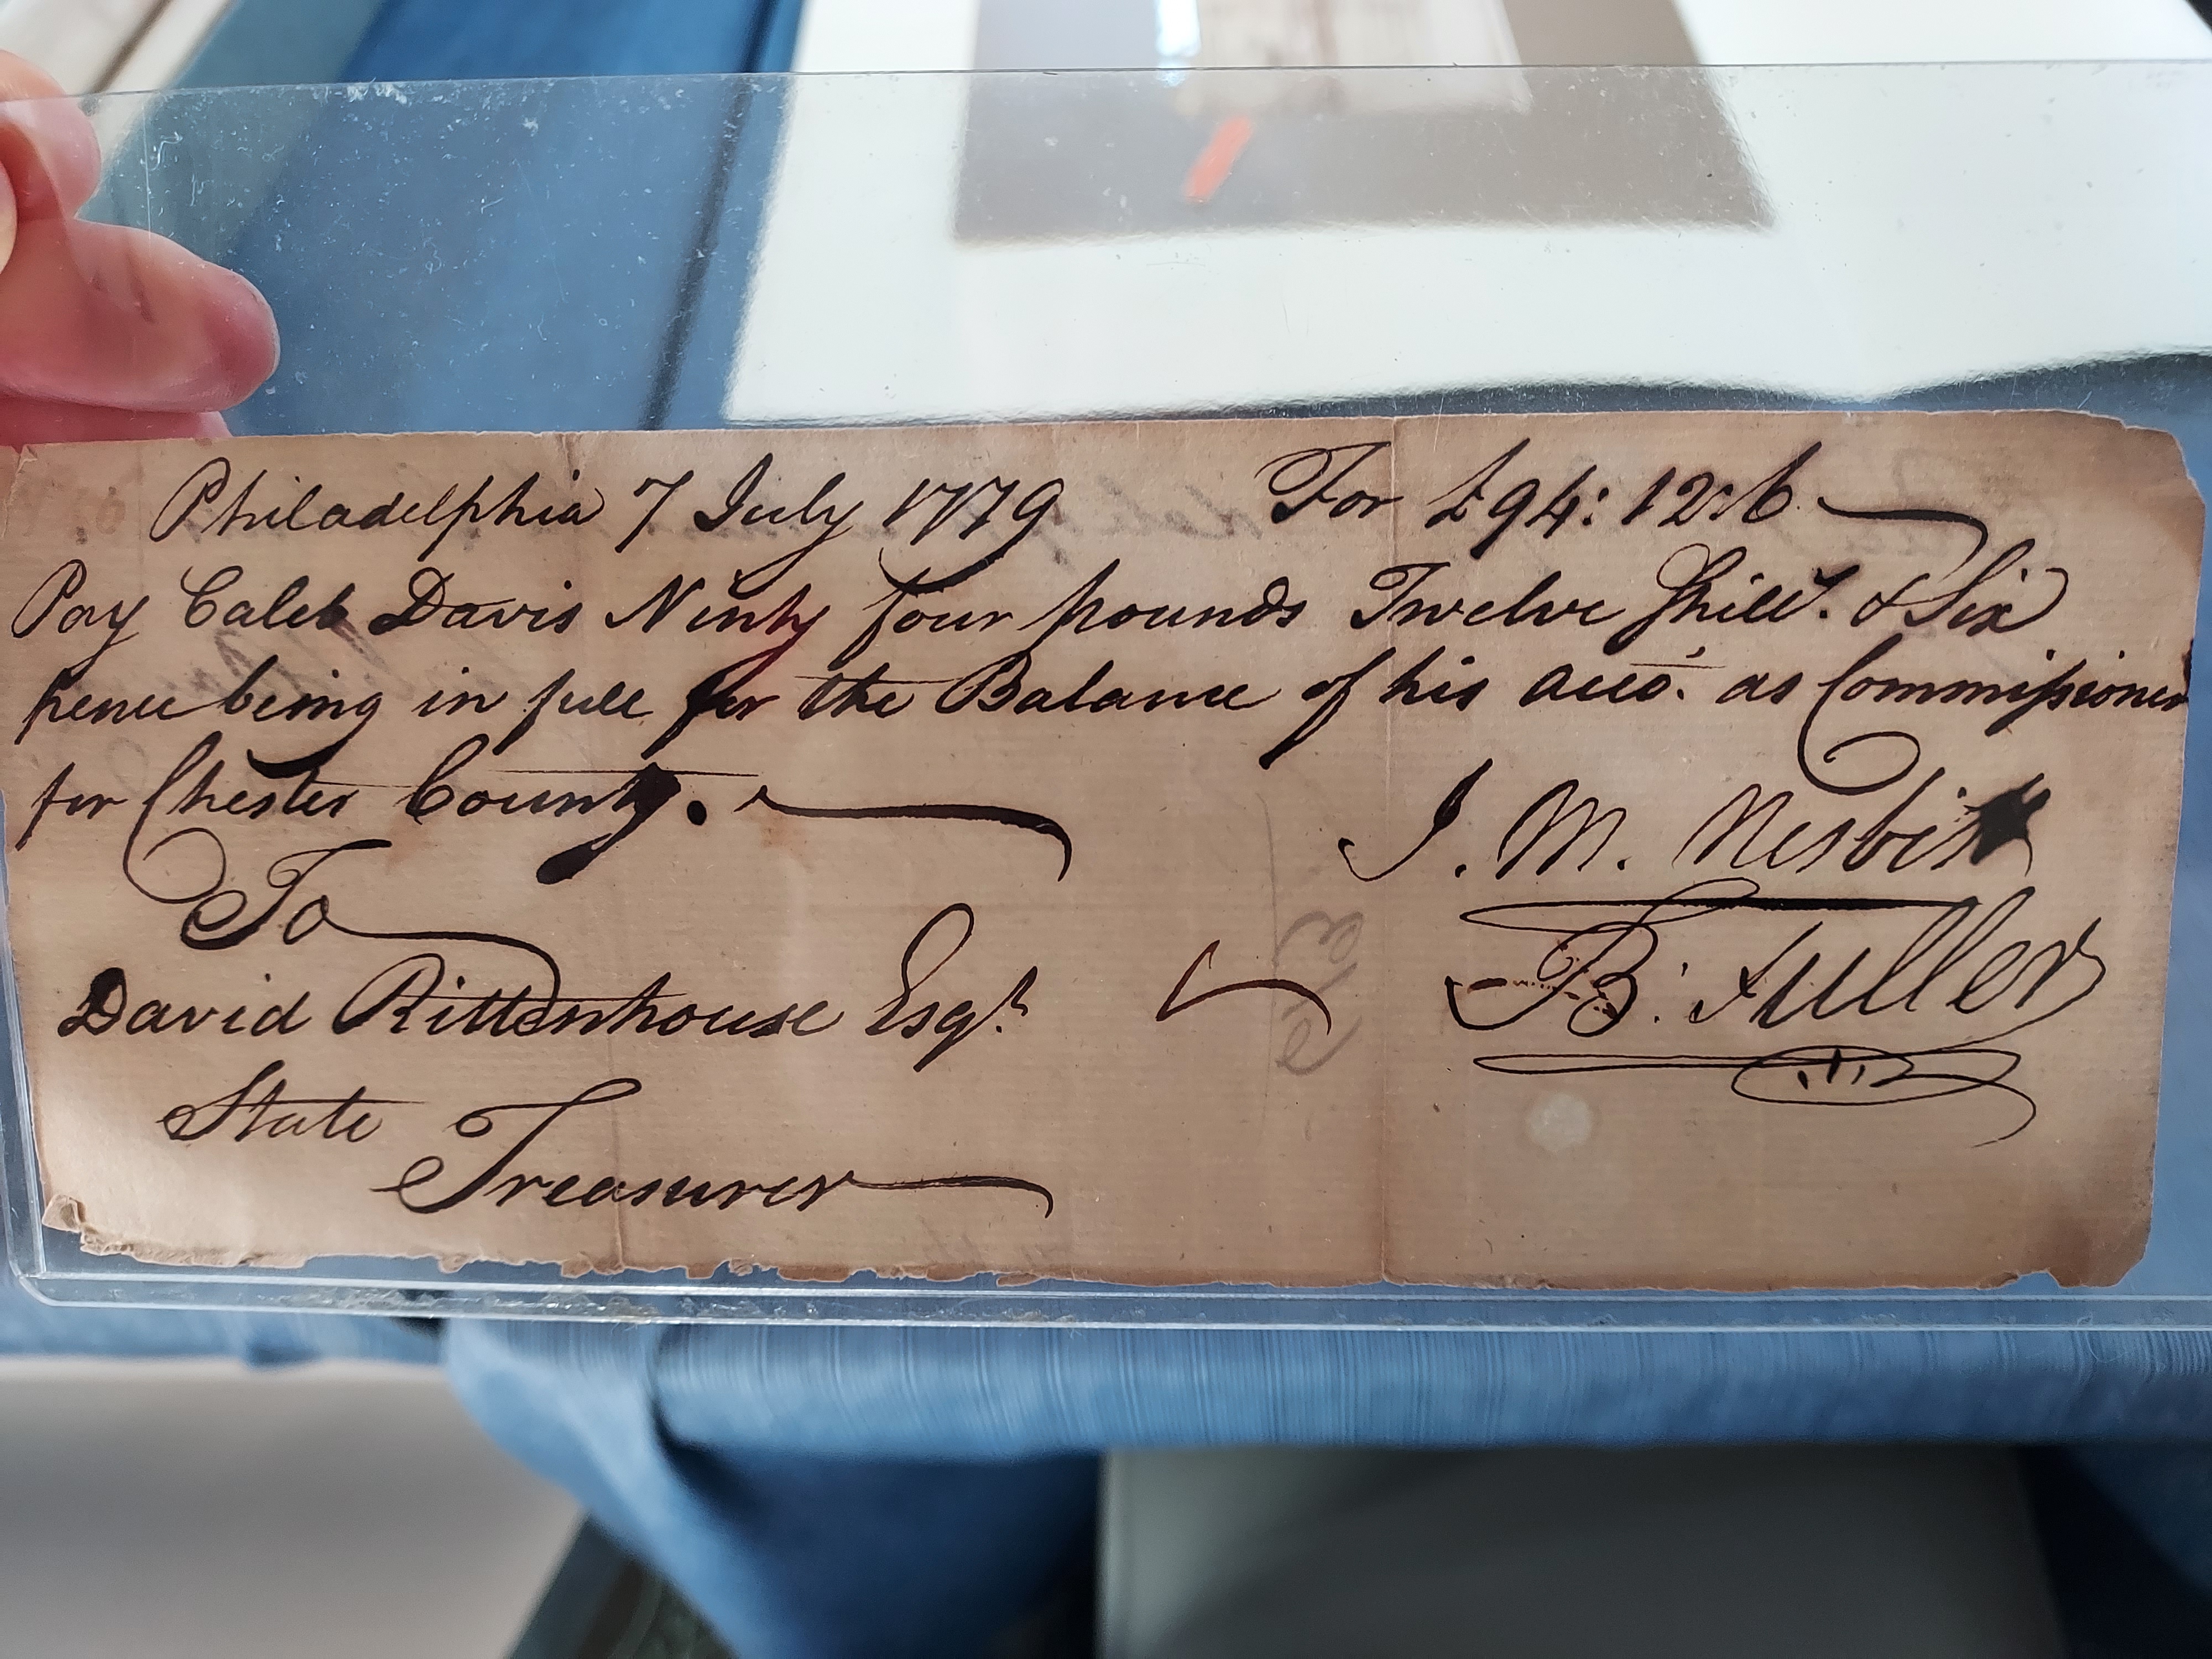 Philadelphia 7 July 1779 For £94:12:6
Pay Caleb Davis Ninty four pounds Twelve Shills. & Six
pence being in full for the Balance of his acco. as Commissioner
for Chester County.
To
J. M. Nesbitt
David Rittenhouse Esqr.
B. Fuller
State
Treasurer